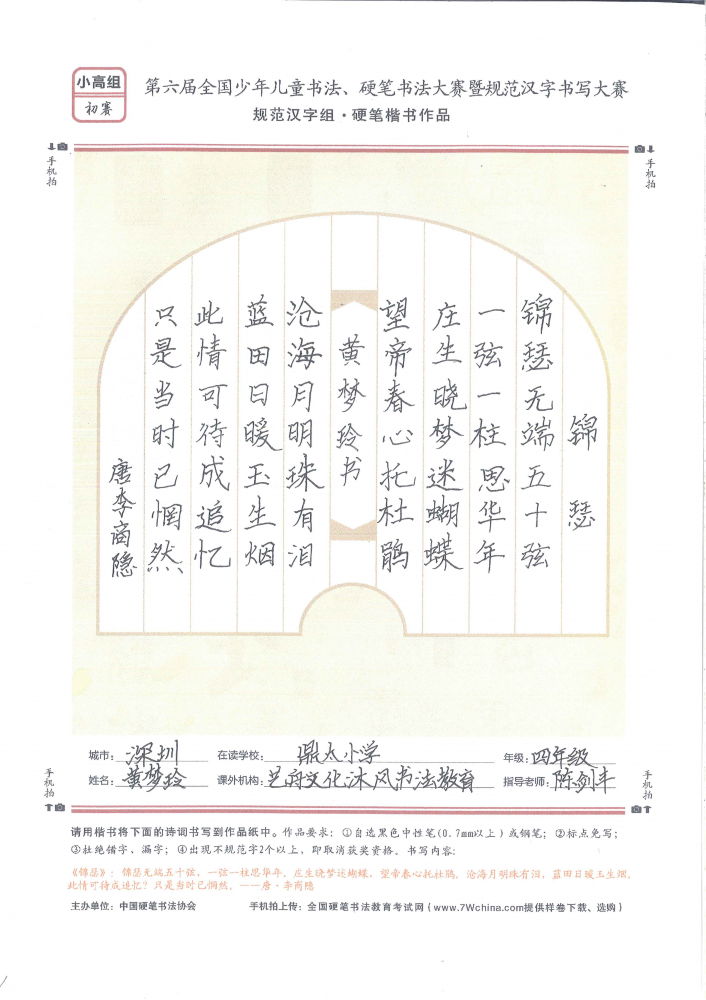 小高组
初赛
第六届全国少年儿童书法、硬笔书法大赛暨规范汉字书写大赛
规范汉字组·硬笔楷书作品
手机拍
手机拍
锦瑟
锦瑟无端五十弦
一弦一柱思华年
庄生晓梦迷蝴蝶
望帝春心托杜鹃
黄梦玲书
沧海月明珠有泪
蓝田日暖玉生烟
此情可待成追忆
只是当时已惘然
唐李商隐
城市：深圳 在读学校：鼎太小学 年级：四年级
姓名：黄梦玲 课外机构：艺府文化沐风书法教育 指导老师：陈剑丰
手机拍
手机拍
请用楷书将下面的诗词书写到作品纸中。作品要求：①自选黑色中性笔(0.7mm以上)或钢笔；②标点免写；
③杜绝错字、漏字；④出现不规范字2个以上，即取消获奖资格。书写内容：
《锦瑟》：锦瑟无端五十弦，一弦一柱思华年。庄生晓梦迷蝴蝶，望帝春心托杜鹃。沧海月明珠有泪，蓝田日暖玉生烟。
此情可待成追忆？只是当时已惘然。——唐·李商隐
主办单位：中国硬笔书法协会 手机拍上传：全国硬笔书法教育考试网(www.7Wchina.com提供样卷下载、选购)